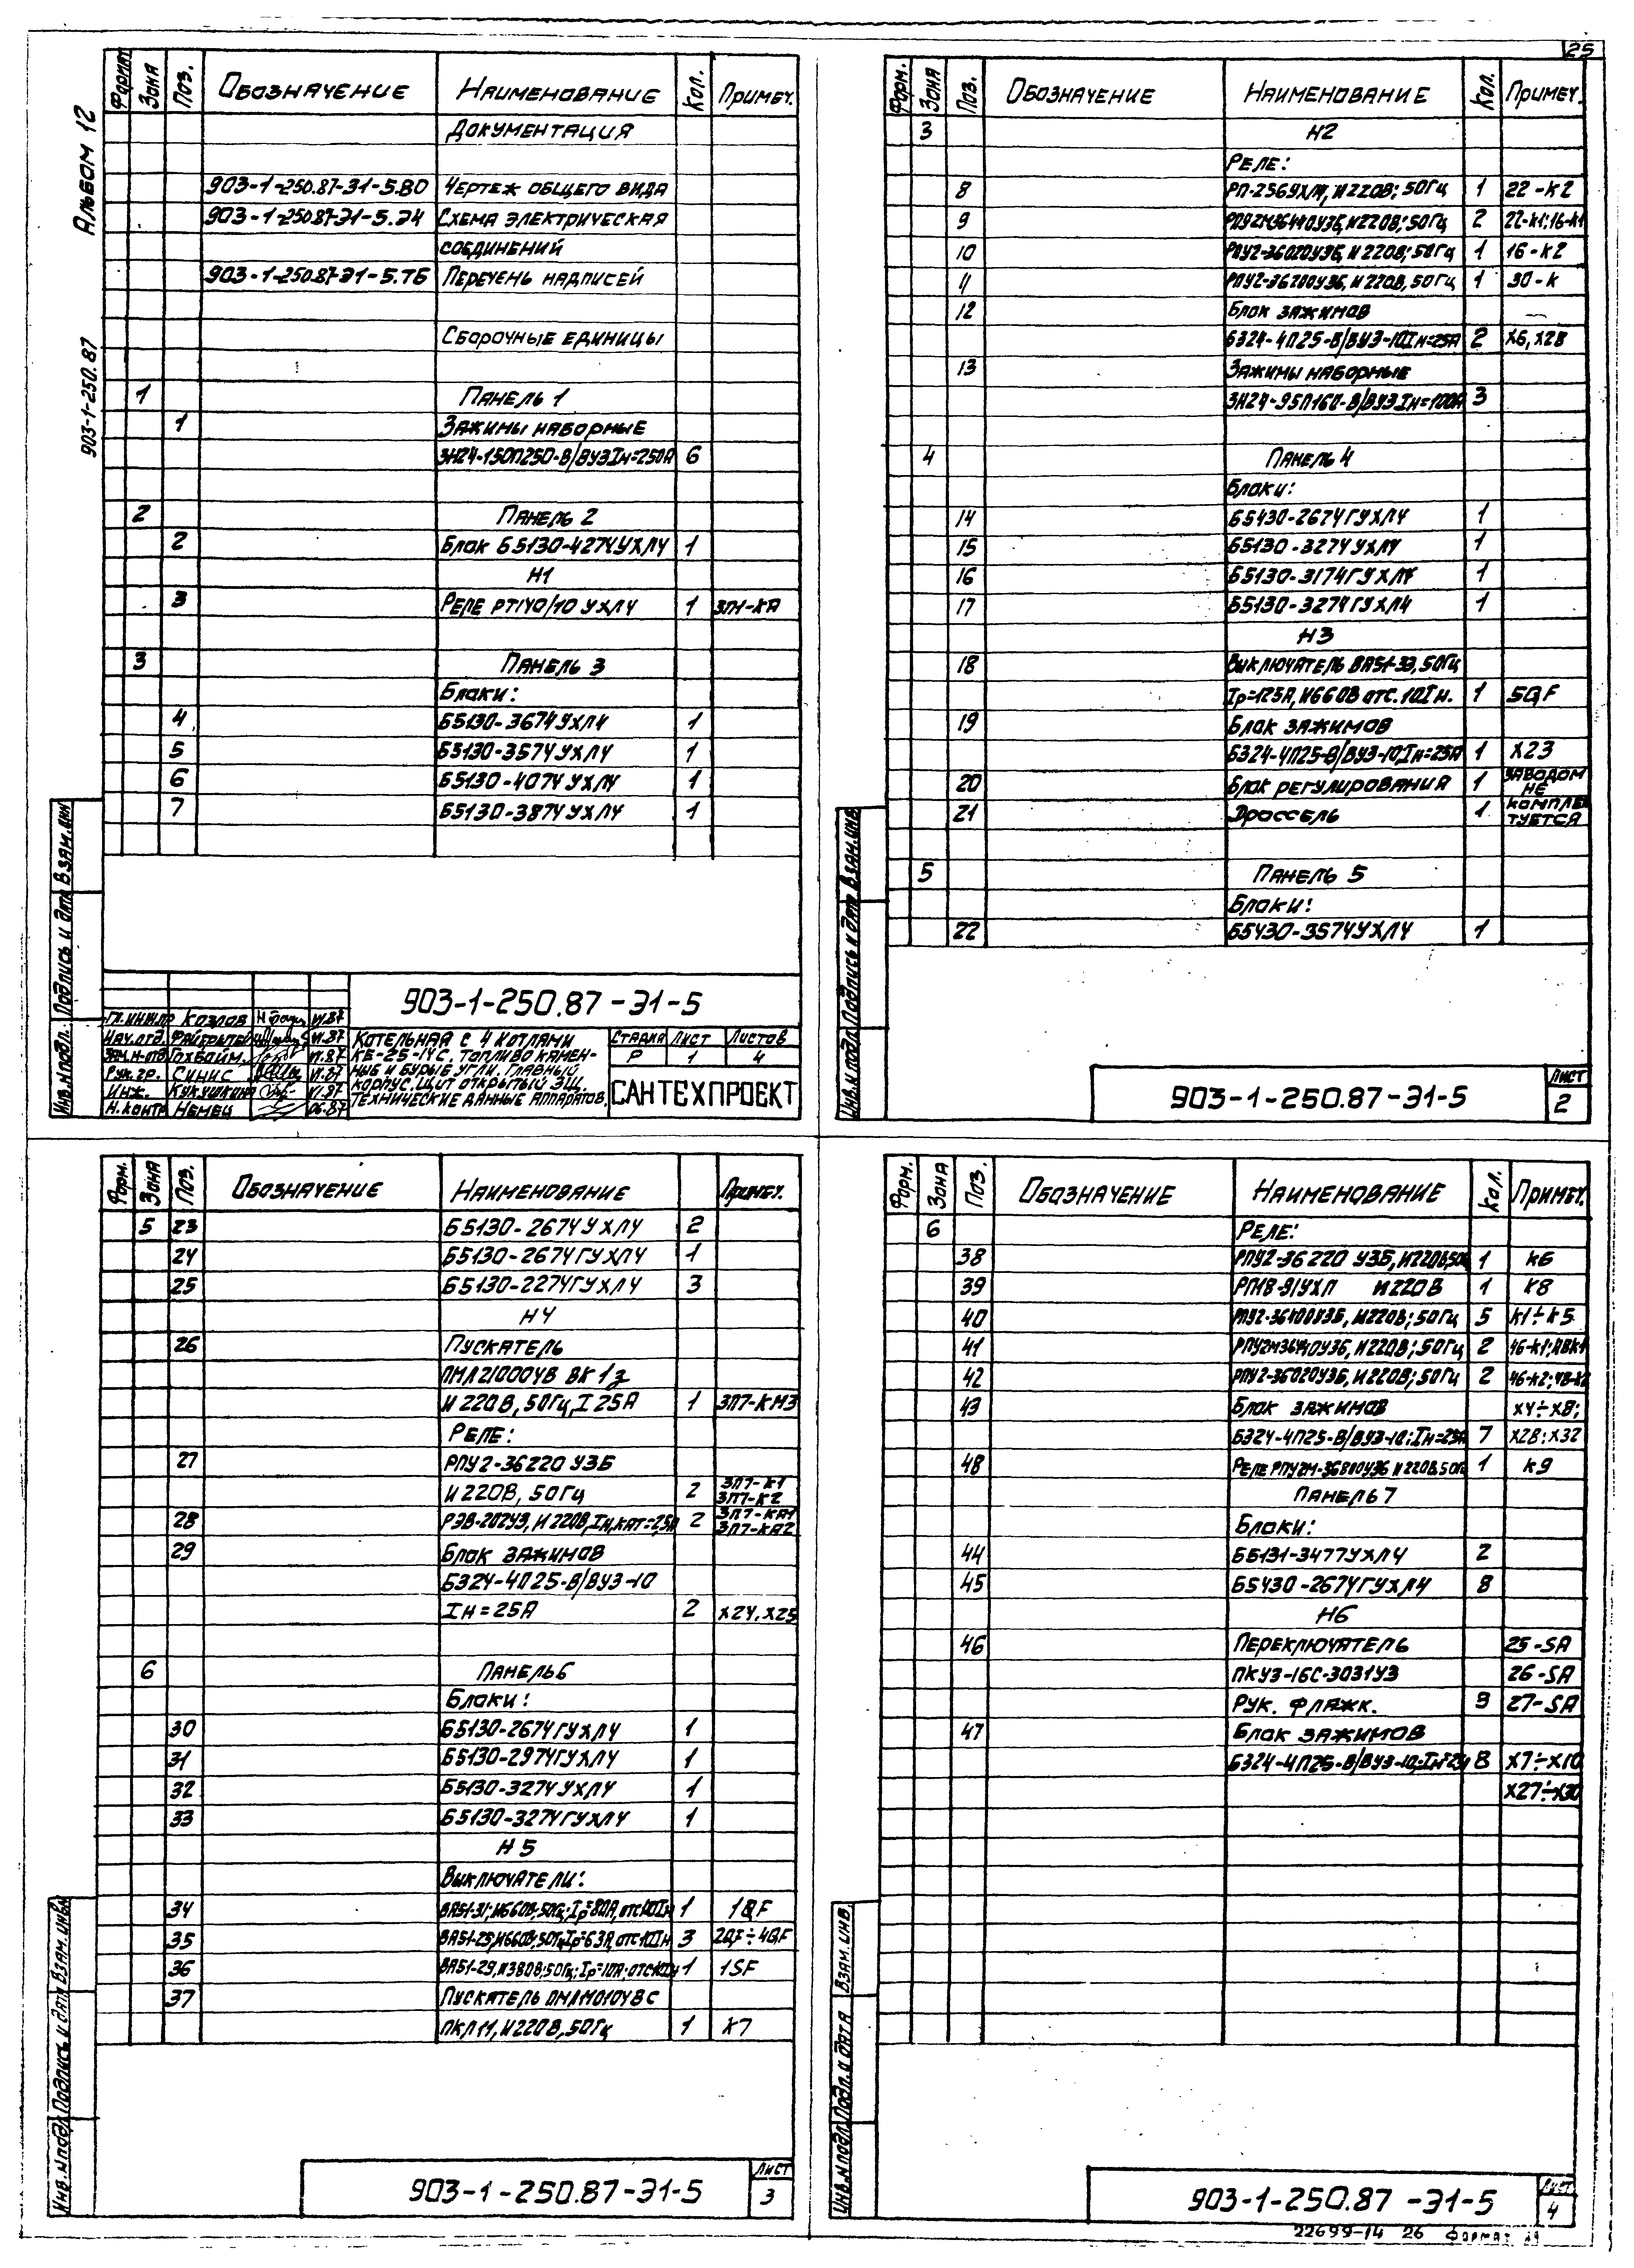 25
Альбом 12
903-1-250.87
Формат Зона Поз. Обозначение Наименование Кол. Примеч.
Документация
903-1-250.87-Э1-5.ВО Чертеж общего вида
903-1-250.87-Э1-5.Э4 Схема электрическая
соединений
903-1-250.87-Э1-5.ТБ Перечень надписей
Сборочные единицы
1 Панель 1
1 Зажимы наборные
ЗН24-150П250-В/ВУЗ Iн=250А 6
2 Панель 2
2 Блок Б5130-4274УХЛ4 1
Н1
3 Реле РТ140/10 УХЛ4 1 3П1-КА
3 Панель 3
Блоки:
4 Б5130-3674УХЛ4 1
5 Б5130-3574УХЛ4 1
6 Б5130-4074УХЛ4 1
7 Б5130-3874УХЛ4 1
903-1-250.87-Э1-5
Гл.инж.пр Козлов VI.87
Нач.отд. VI.87
Зам.н.отд Гохбойм. VI.87
Рук.гр. Синис VI.87
Инж. Кукушкина VI.87
Н.контр Немец 06.87
Котельная с 4 котлами
КЕ-25-14С. Топливо камен-
ные и бурые угли. Главный
корпус. Щит открытый ЭЩ.
Технические данные аппаратов.
Стадия Лист Листов
Р 1 4
САНТЕХПРОЕКТ
Инв.№подл. Подпись и дата Взам.инв
Форм. Зона Поз. Обозначение Наименование Кол. Примеч.
3 Н2
Реле:
8 РП-256УХЛ4, И220В; 50Гц 1 22-К2
9 РПУ2М36440У3Б, И220В; 50Гц 2 22-К1; 16-К1
10 РПУ2-36020У3Б, И220В; 50Гц 1 16-К2
11 РПУ2-36200У3Б, И220В, 50Гц 1 30-К
12 Блок зажимов
Б324-4П25-В/ВУЗ-10Iн=25А 2 Х6, Х28
13 Зажимы наборные
ЗН24-95П160-В/ВУЗ Iн=100А 3
4 Панель 4
Блоки:
14 Б5430-2674ГУХЛ4 1
15 Б5130-3274УХЛ4 1
16 Б5130-3174ГУХЛ4 1
17 Б5130-3274ГУХЛ4 1
Н3
18 Выключатель ВА51-33, 50Гц
Iр=125А, И660В отс.10Iн. 1 5QF
19 Блок зажимов
Б324-4П25-В/ВУЗ-10;Iн=25А 1 Х23
20 Блок регулирования 1 Заводом
не
21 Дроссель 1 комплек
туется
5 Панель 5
Блоки:
22 Б5430-3574УХЛ4 1
903-1-250.87-Э1-5 Лист
2
Инв.№подл. Подпись и дата Взам.инв
Форм. Зона Поз. Обозначение Наименование Примеч.
5 23 Б5130-2674УХЛ4 2
24 Б5130-2674ГУХЛ4 1
25 Б5130-2274ГУХЛ4 3
Н4
26 Пускатель
ПМЛ21000У4В ВК1з
И220В, 50Гц, I 25А 1 3П7-КМ3
Реле:
27 РПУ2-36220 У3Б
И220В, 50Гц 2 3П7-К1
3П7-К2
28 РЭВ-202У3, И220В, Iн.кат=2,5А 2 3П7-КА1
3П7-КА2
29 Блок зажимов
Б324-4П25-В/ВУЗ-10
Iн=25А 2 Х24, Х25
6 Панель 6
Блоки:
30 Б5130-2674ГУХЛ4 1
31 Б5130-2974ГУХЛ4 1
32 Б5130-3274УХЛ4 1
33 Б5130-3274ГУХЛ4 1
Н5
Выключатели:
34 ВА51-31; И660В; 50Гц; Iр=80А, отс10Iн 1 1QF
35 ВА51-25, И660В, 50Гц, Iр=6.3А, отс10Iн 3 2QF÷4QF
36 ВА51-29, И380В; 50Гц; Iр=10А; отс10Iн 1 1SF
37 Пускатель
ПКЛ11, И220В, 50Гц 1 К7
903-1-250.87-Э1-5 Лист
3
Инв.№подл. Подпись и дата Взам.инв№
Форм. Зона Поз. Обозначение Наименование Кол. Примеч.
6 Реле:
38 РПУ2-36220 У3Б, И220В,50Гц 1 К6
39 РП18-91УХЛ И220В 1 К8
40 РПУ2-36400У3Б, И220В; 50Гц 5 К1÷К5
41 РПУ2М36440У3Б, И220В; 50Гц 2
42 РПУ2-36020У3Б, И220В; 50Гц 2
43 Блок зажимов Х4÷Х8;
Б324-4П25-В/ВУЗ-10; Iн=25А 7 Х28; Х32
48 Реле РПУ2М-36800У36 И220В,50Гц 1 К9
Панель 7
Блоки:
44 Б5131-3477УХЛ4 2
45 Б5430-2674ГУХЛ4 8
Н6
46 Переключатель 25-SA
ПКУ3-16С-3031У3 26-SA
Рук. флажк. 3 27-SA
47 Блок зажимов
Б324-4П25-В/ВУЗ-10; 8 Х7÷Х10
Х27÷Х30
903-1-250.87-Э1-5 Лист
4
Инв.№подл Подп. и дата Взам.инв.
22699-14 26 Формат А3